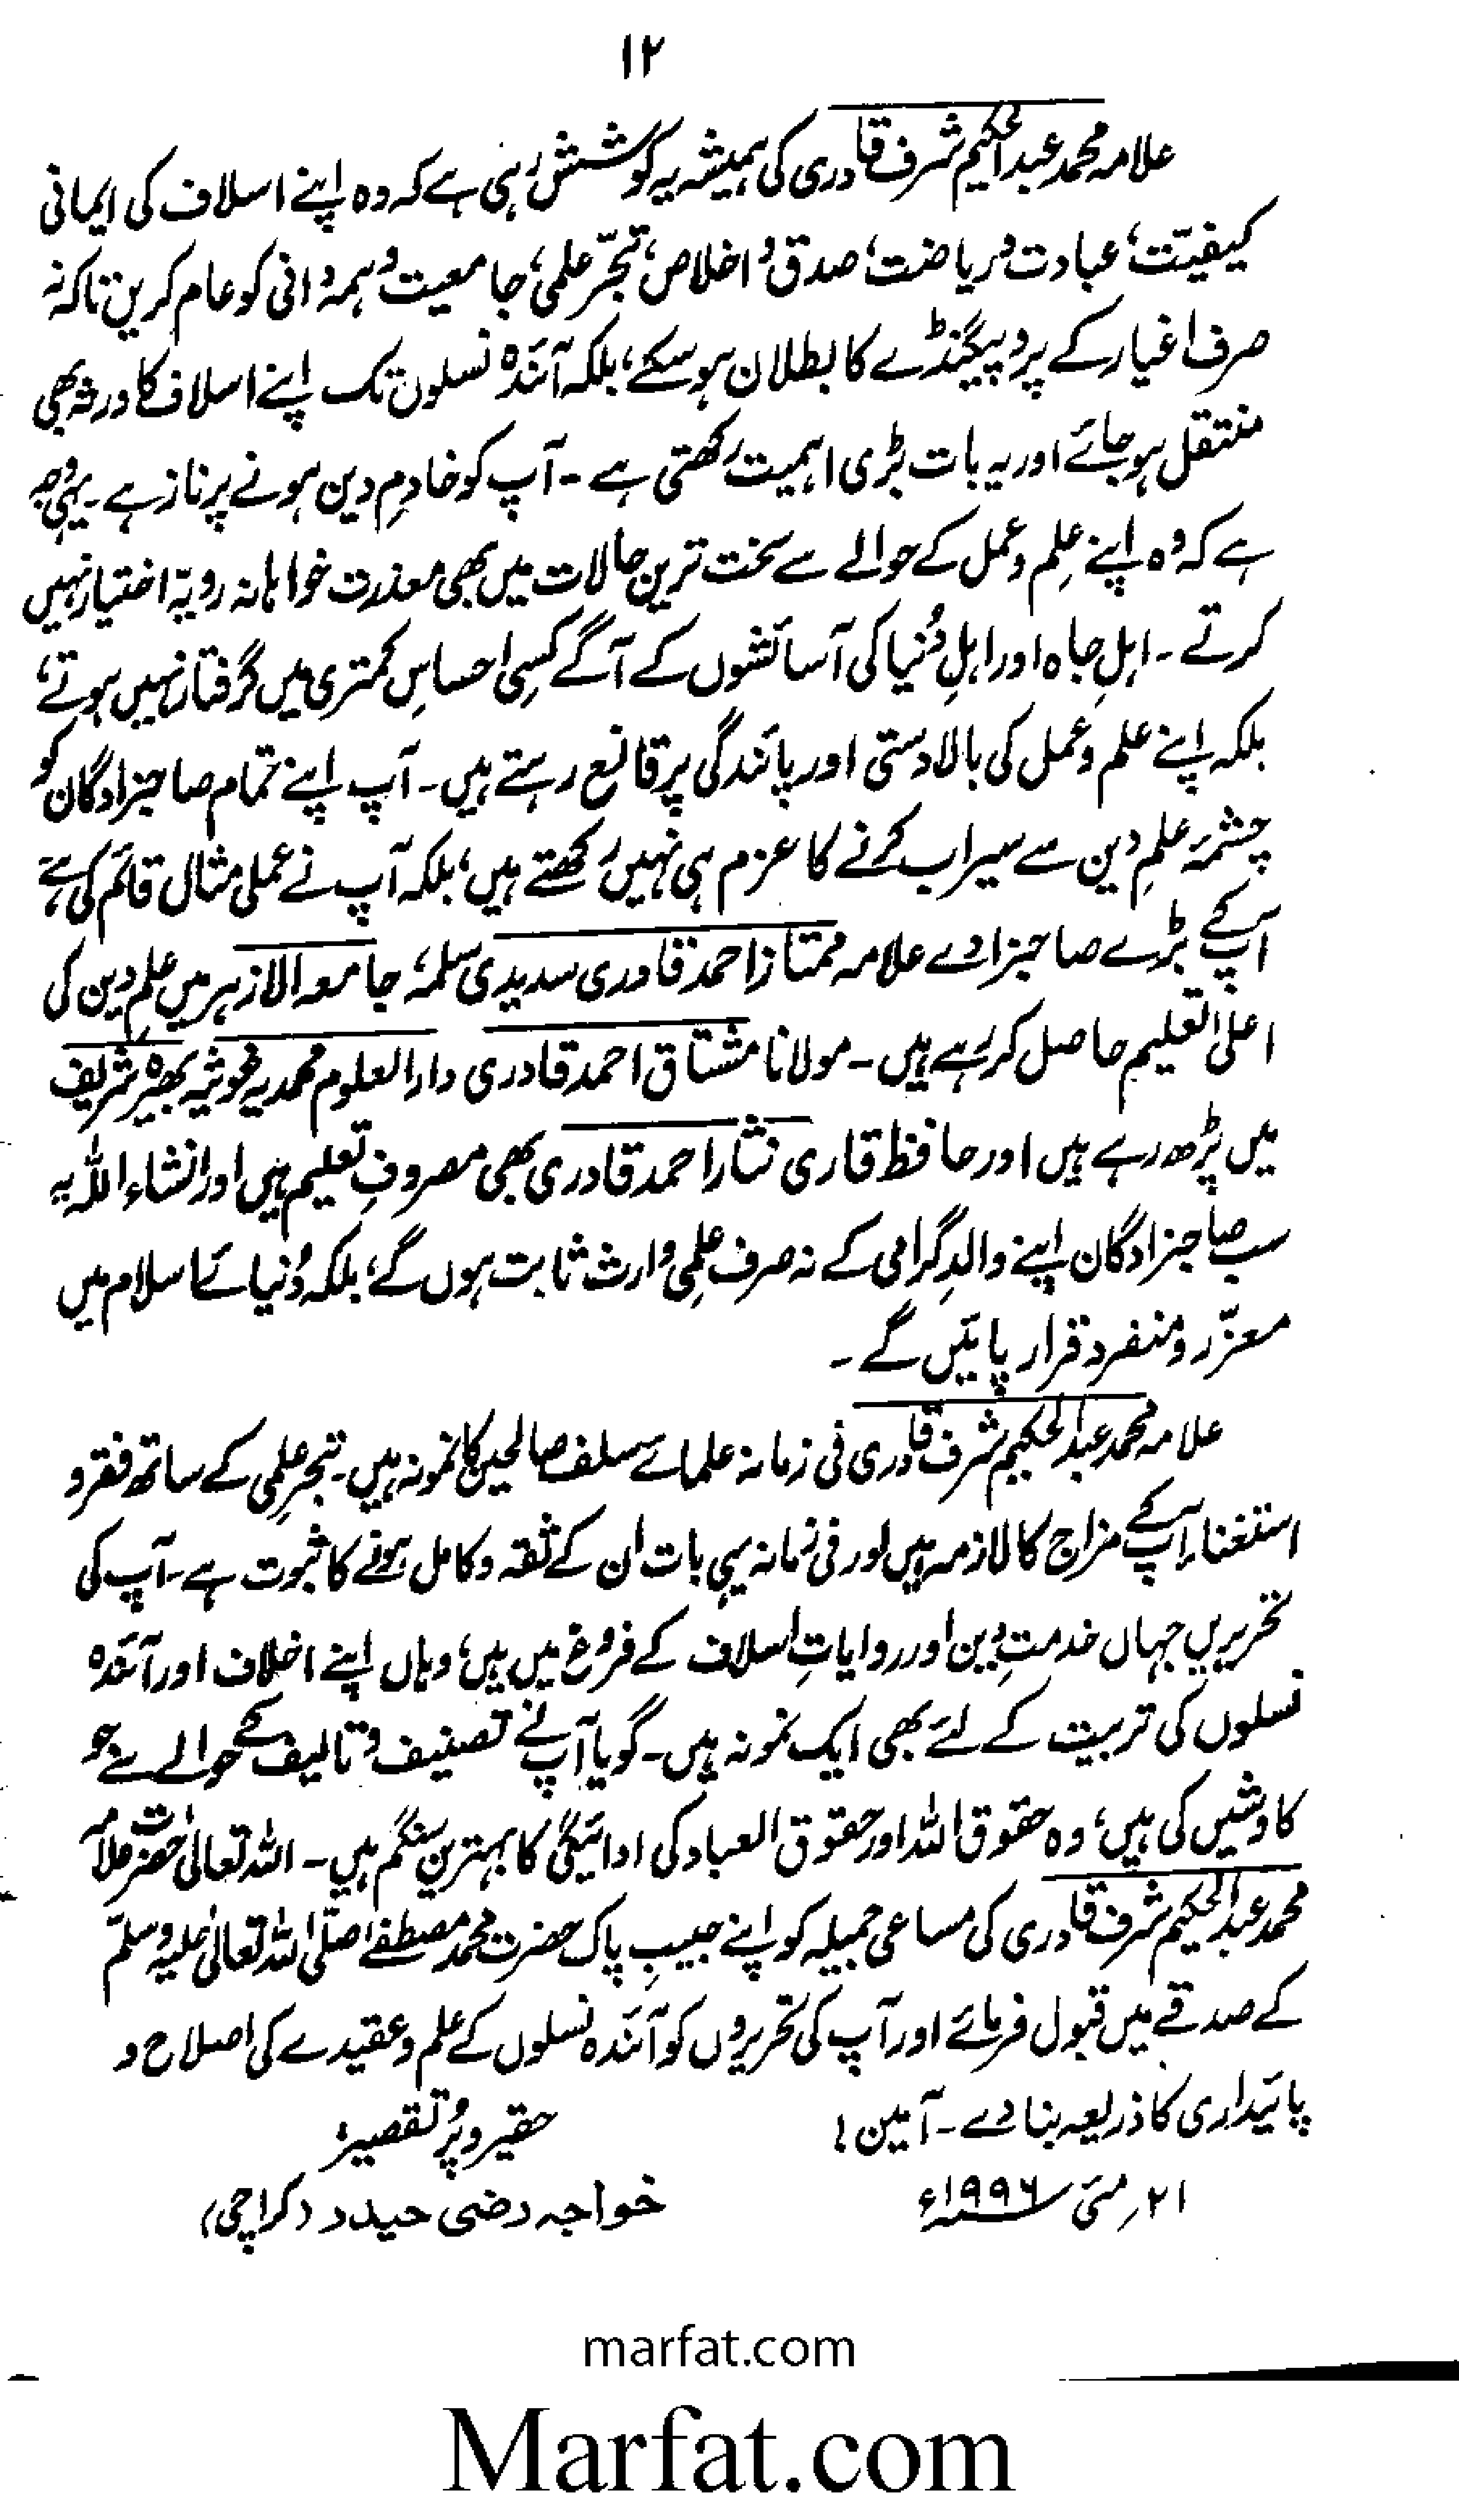 ۱۲
علامہ محمد عبدالحکیم شرف قادری کی ہمیشہ یہ کوشش رہی ہے کہ وہ اپنے اسلاف کی ایمانی
کیفیّت، عبادت و ریاضت، صدق و اخلاص، تبحّرِ علمی، جامعیت و ہمہ دانی کو عام کریں تاکہ نہ
صرف اغیار کے پروپیگنڈے کا بطلان ہو سکے، بلکہ آئندہ نسلوں تک اپنے اسلاف کا ورثہ بھی
منتقل ہو جائے اور یہ بات بڑی اہمیت رکھتی ہے۔ آپ کو خادمِ دین ہونے پر ناز ہے۔ یہی وجہ
ہے کہ وہ اپنے عِلم و عمل کے حوالے سے سخت ترین حالات میں بھی معذرت خواہانہ رویّہ اختیار نہیں
کرتے۔ اہلِ جاہ اور اہلِ دُنیا کی آسائشوں کے آگے کسی احساسِ کمتری میں گرفتار نہیں ہوتے،
بلکہ اپنے علم و عمل کی بالادستی اور پائندگی پر قانع رہتے ہیں۔ آپ اپنے تمام صاحبزادگان کو
چشمۂ علمِ دین سے سیراب کرنے کا عزم ہی نہیں رکھتے ہیں، بلکہ آپ نے عملی مثال قائم کی ہے،
آپ کے بڑے صاحبزادے علامہ ممتاز احمد قادری سدیدی سلمہٗ، جامعہ الازہر میں علمِ دین کی
اعلیٰ تعلیم حاصل کر رہے ہیں۔ مولانا مشتاق احمد قادری دارالعلوم محمدیہ غوثیہ بھیرہ شریف
میں پڑھ رہے ہیں اور حافظ قاری نثار احمد قادری بھی مصروفِ تعلیم ہیں اور انشاء اللہ یہ
سب صاحبزادگان اپنے والدِ گرامی کے نہ صرف علمی وارث ثابت ہوں گے، بلکہ دُنیائے اسلام میں
معزّز و منفرد قرار پائیں گے۔
علامہ محمد عبدالحکیم شرف قادری فی زمانہ علمائے سلف صالحین کا نمونہ ہیں۔ تبحرِ علمی کے ساتھ فقر و
استغناء آپ کے مزاج کا لازمہ ہیں اور فی زمانہ یہی بات ان کے ثقہ و کامل ہونے کا ثبوت ہے۔ آپ کی
تحریریں جہاں خدمتِ دین اور روایاتِ اسلاف کے فروغ میں ہیں، وہاں اپنے اخلاف اور آئندہ
نسلوں کی تربیت کے لئے بھی ایک نمونہ ہیں۔ گویا آپ نے تصنیف و تالیف کے حوالے سے جو
کاوشیں کی ہیں، وہ حقوق اللہ اور حقوق العباد کی ادائیگی کا بہترین سنگم ہیں۔ اللہ تعالیٰ حضرت علامہ
محمد عبدالحکیم شرف قادری کی مساعی جمیلہ کو اپنے حبیبِ پاک حضرت محمد مصطفےٰ صلّی اللہ تعالیٰ علیہ وسلّم
کے صدقے میں قبول فرمائے اور آپ کی تحریروں کو آئندہ نسلوں کے علم و عقیدے کی اصلاح و
پائیداری کا ذریعہ بنا دے۔ آمین!
حقیر و پُر تقصیر:
۲۱؍ مئی ۱۹۹۶ء
خواجہ رضی حیدر (کراچی)
marfat.com
Marfat.com